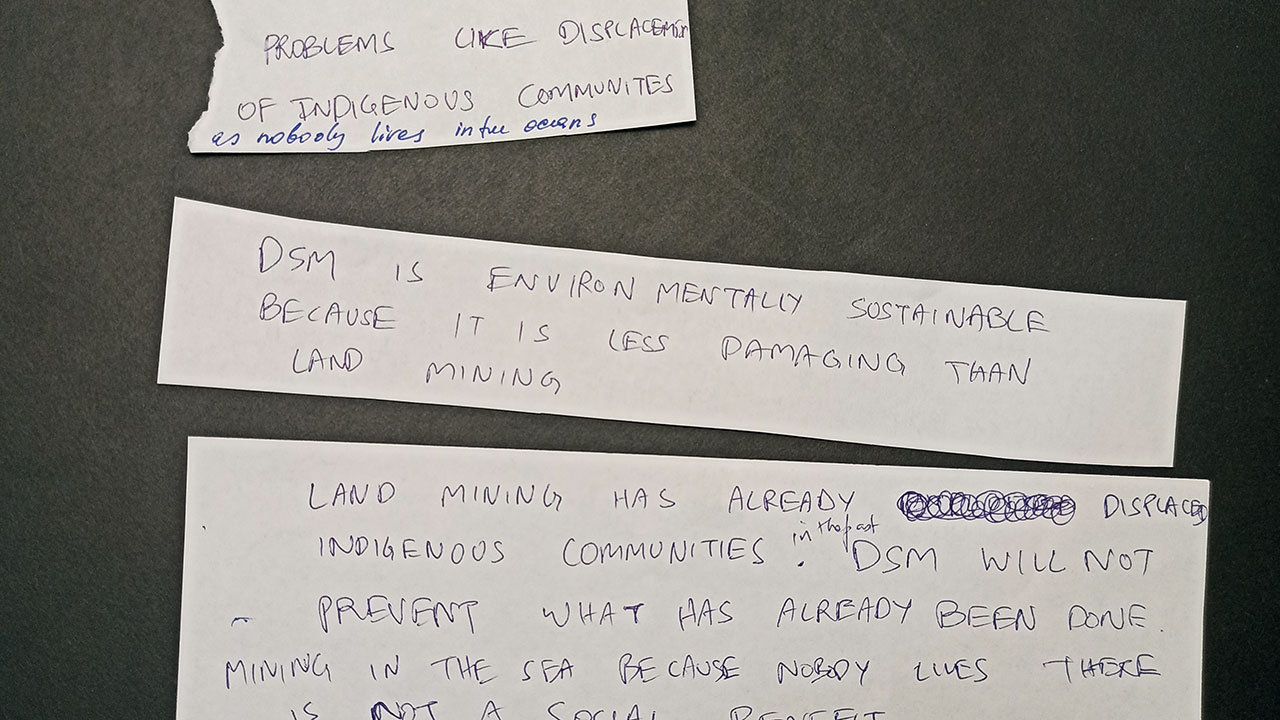 PROBLEMS LIKE DISPLACEMENT
OF INDIGENOUS COMMUNITES
as nobody lives in the oceans
DSM IS ENVIRONMENTALLY SOSTAINABLE
BECAUSE IT IS LESS DAMAGING THAN
LAND MINING
LAND MINING HAS ALREADY DISPLACED
in the past
INDIGENOUS COMMUNITIES. DSM WILL NOT
PREVENT WHAT HAS ALREADY BEEN DONE.
MINING IN THE SEA BECAUSE NOBODY LIVES THERE
IS NOT A SOCIAL BENEFIT